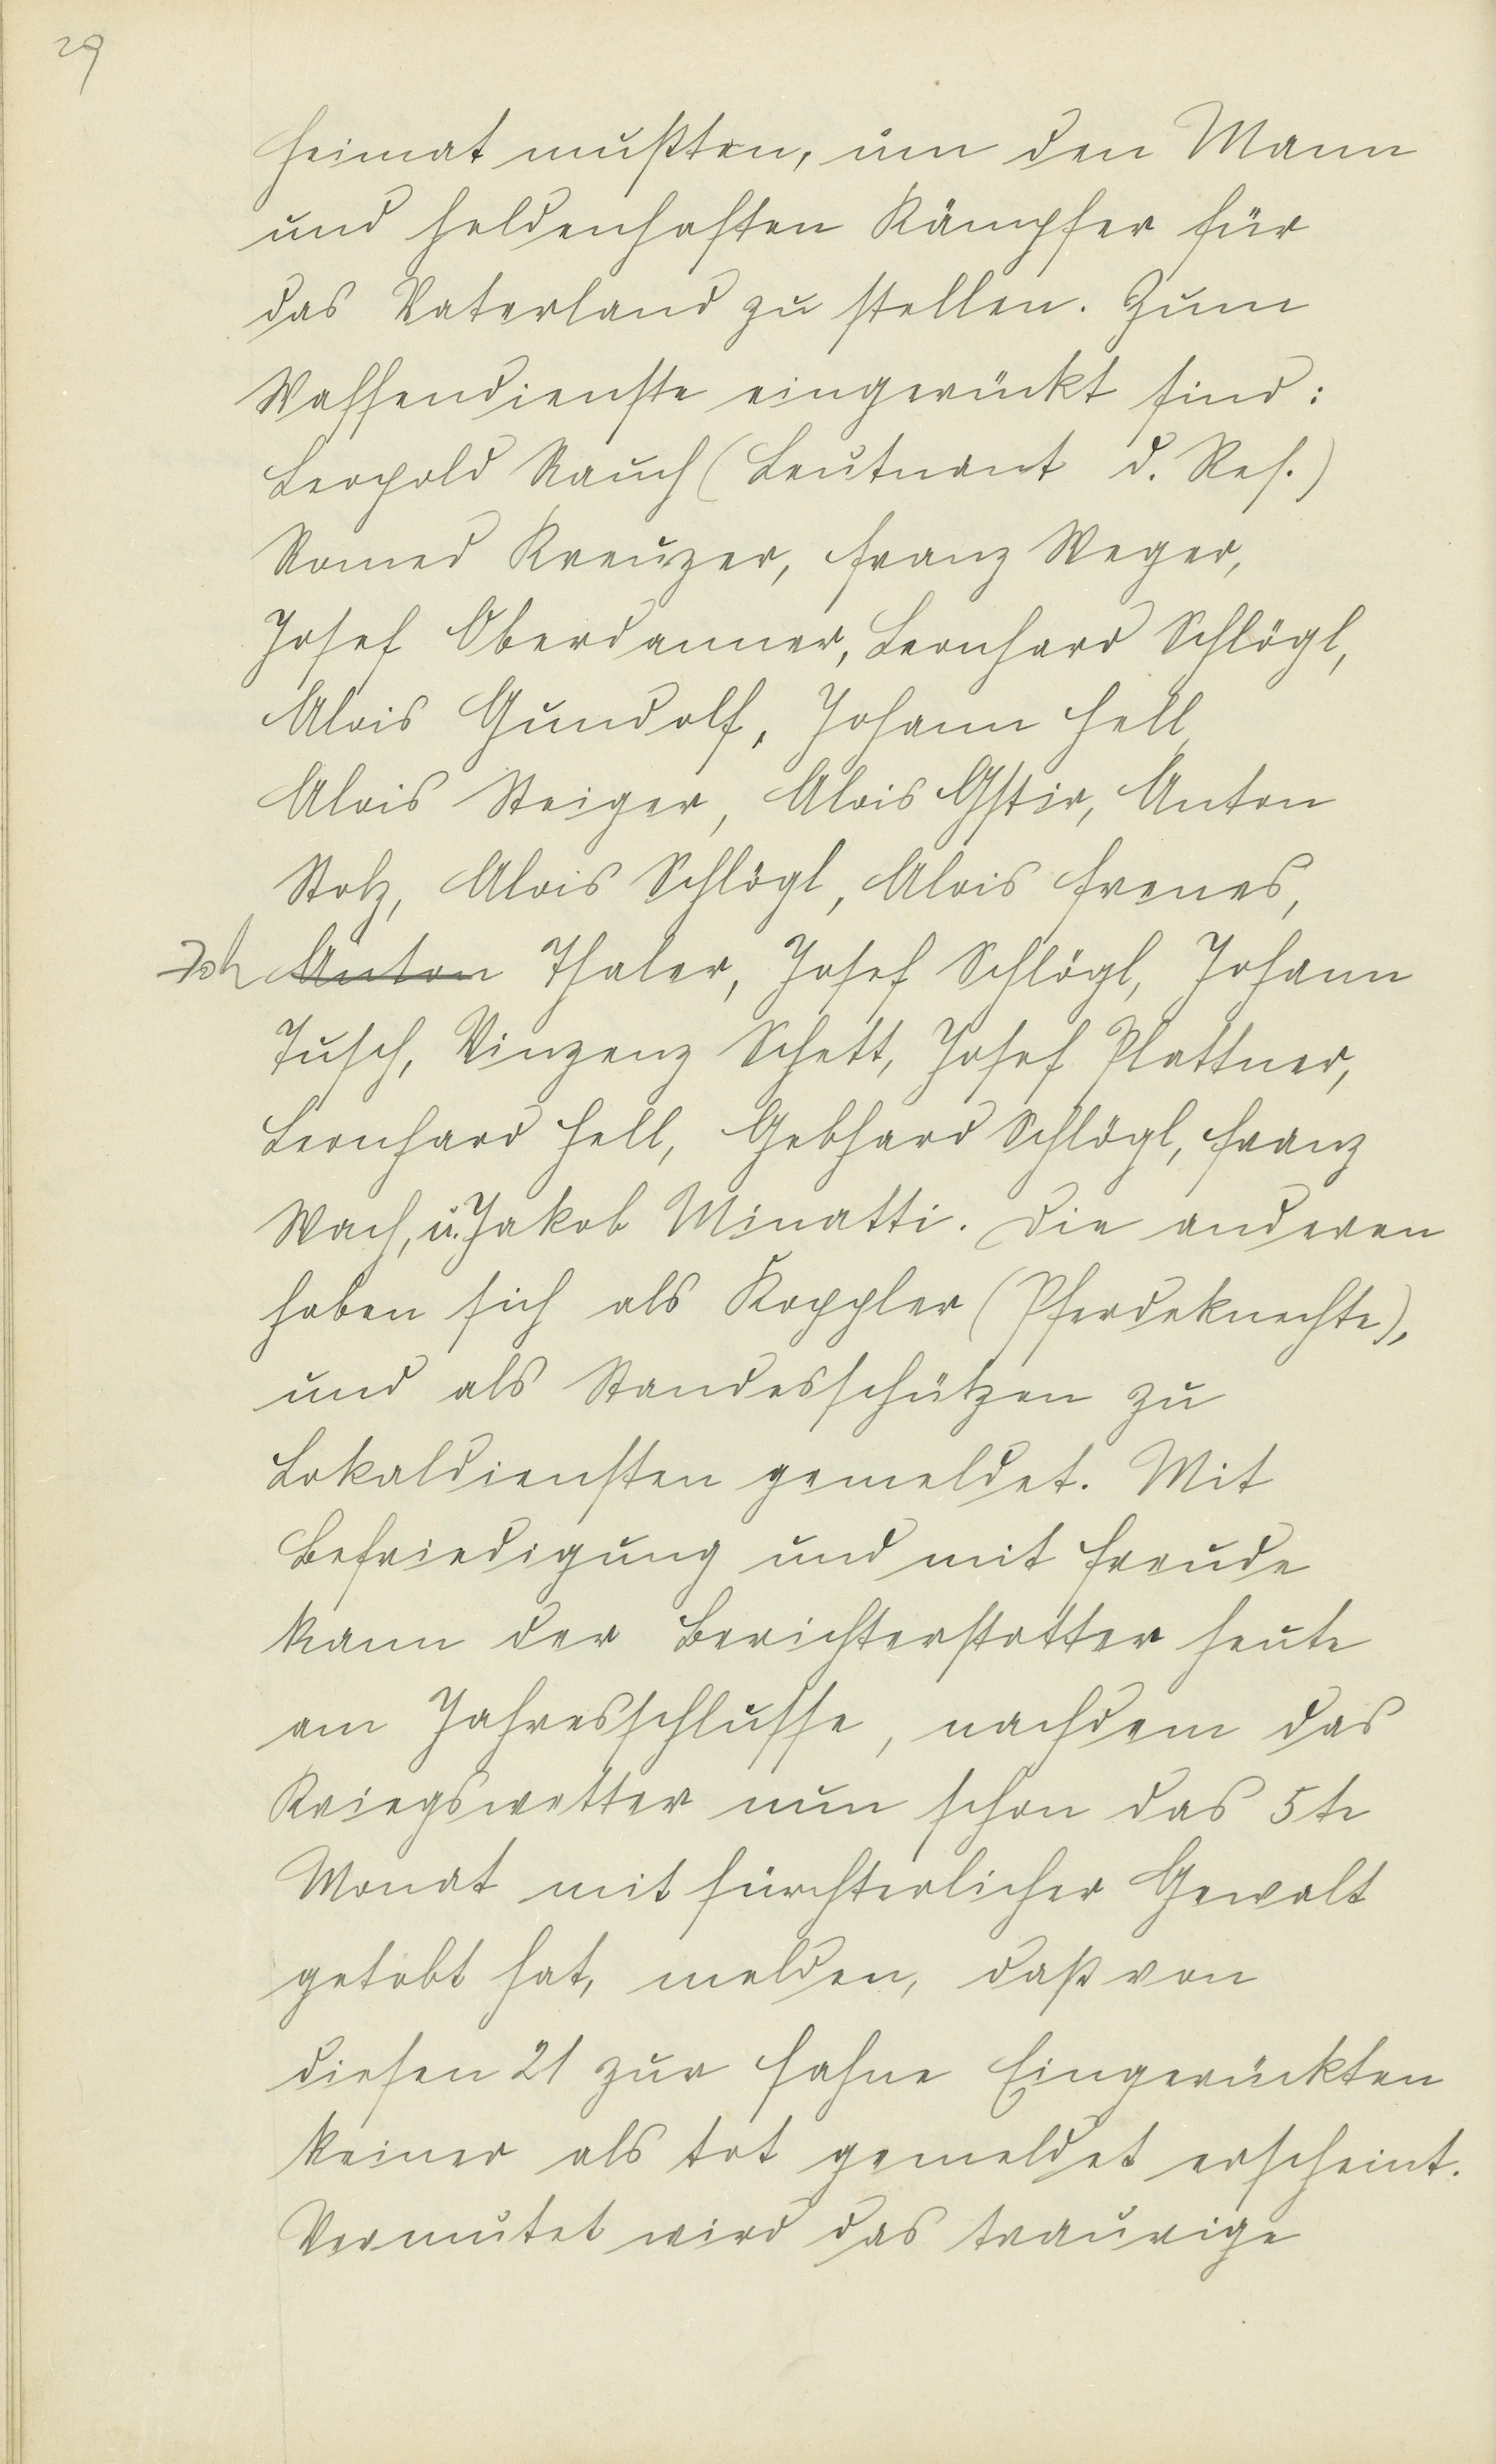 29
Heimat mußten, um den Mann
und heldenhaften Kämpfer für
das Vaterland zu stellen. Zum
Waffendienste eingerückt sind:
Leopold Rauch (Leutnant d. Res.)
Romed Kreuzer, Franz Weger,
Josef Oberdanner, Leonhard Schlögl,
Alois Gundolf, Johann Hell,
Alois Steiger, Alois Gstir, Anton
Stolz, Alois Schlögl, Alois Frenes,
Joh Anton Thaler, Josef Schlögl, Johann
Tusch, Vinzenz Schett, Josef Plattner,
Leonhard Hell, Gebhard Schlögl, Franz
Wach, u. Jakob Minatti. Die anderen
haben sich als Koppler (Pferdeknechte),
und als Standesschützen zu
Lokaldiensten gemeldet. Mit
Befriedigung und mit Freude
kann der Berichterstatter heute
am Jahresschlusse, nachdem das
Kriegswetter nun schon das 5te
Monat mit fürchterlicher Gewalt
getobt hat, melden, daß von
diesen 21 zur Fahne Eingerückten
keiner als tot gemeldet erscheint.
Vermutet wird das traurige